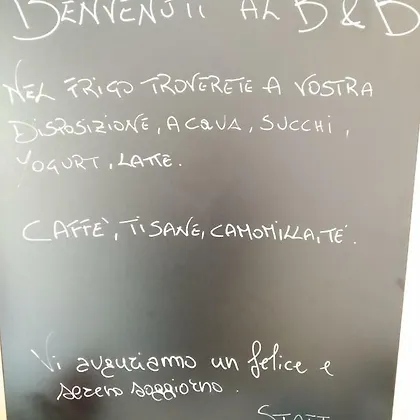 BENVENUTI AL B & B
NEL FRIGO TROVERETE A VOSTRA
DISPOSIZIONE, ACQUA, SUCCHI,
YOGURT, LATTE.
CAFFÈ, TISANE, CAMOMILLA, TÈ.
Vi auguriamo un felice e
sereno soggiorno.
STAFF